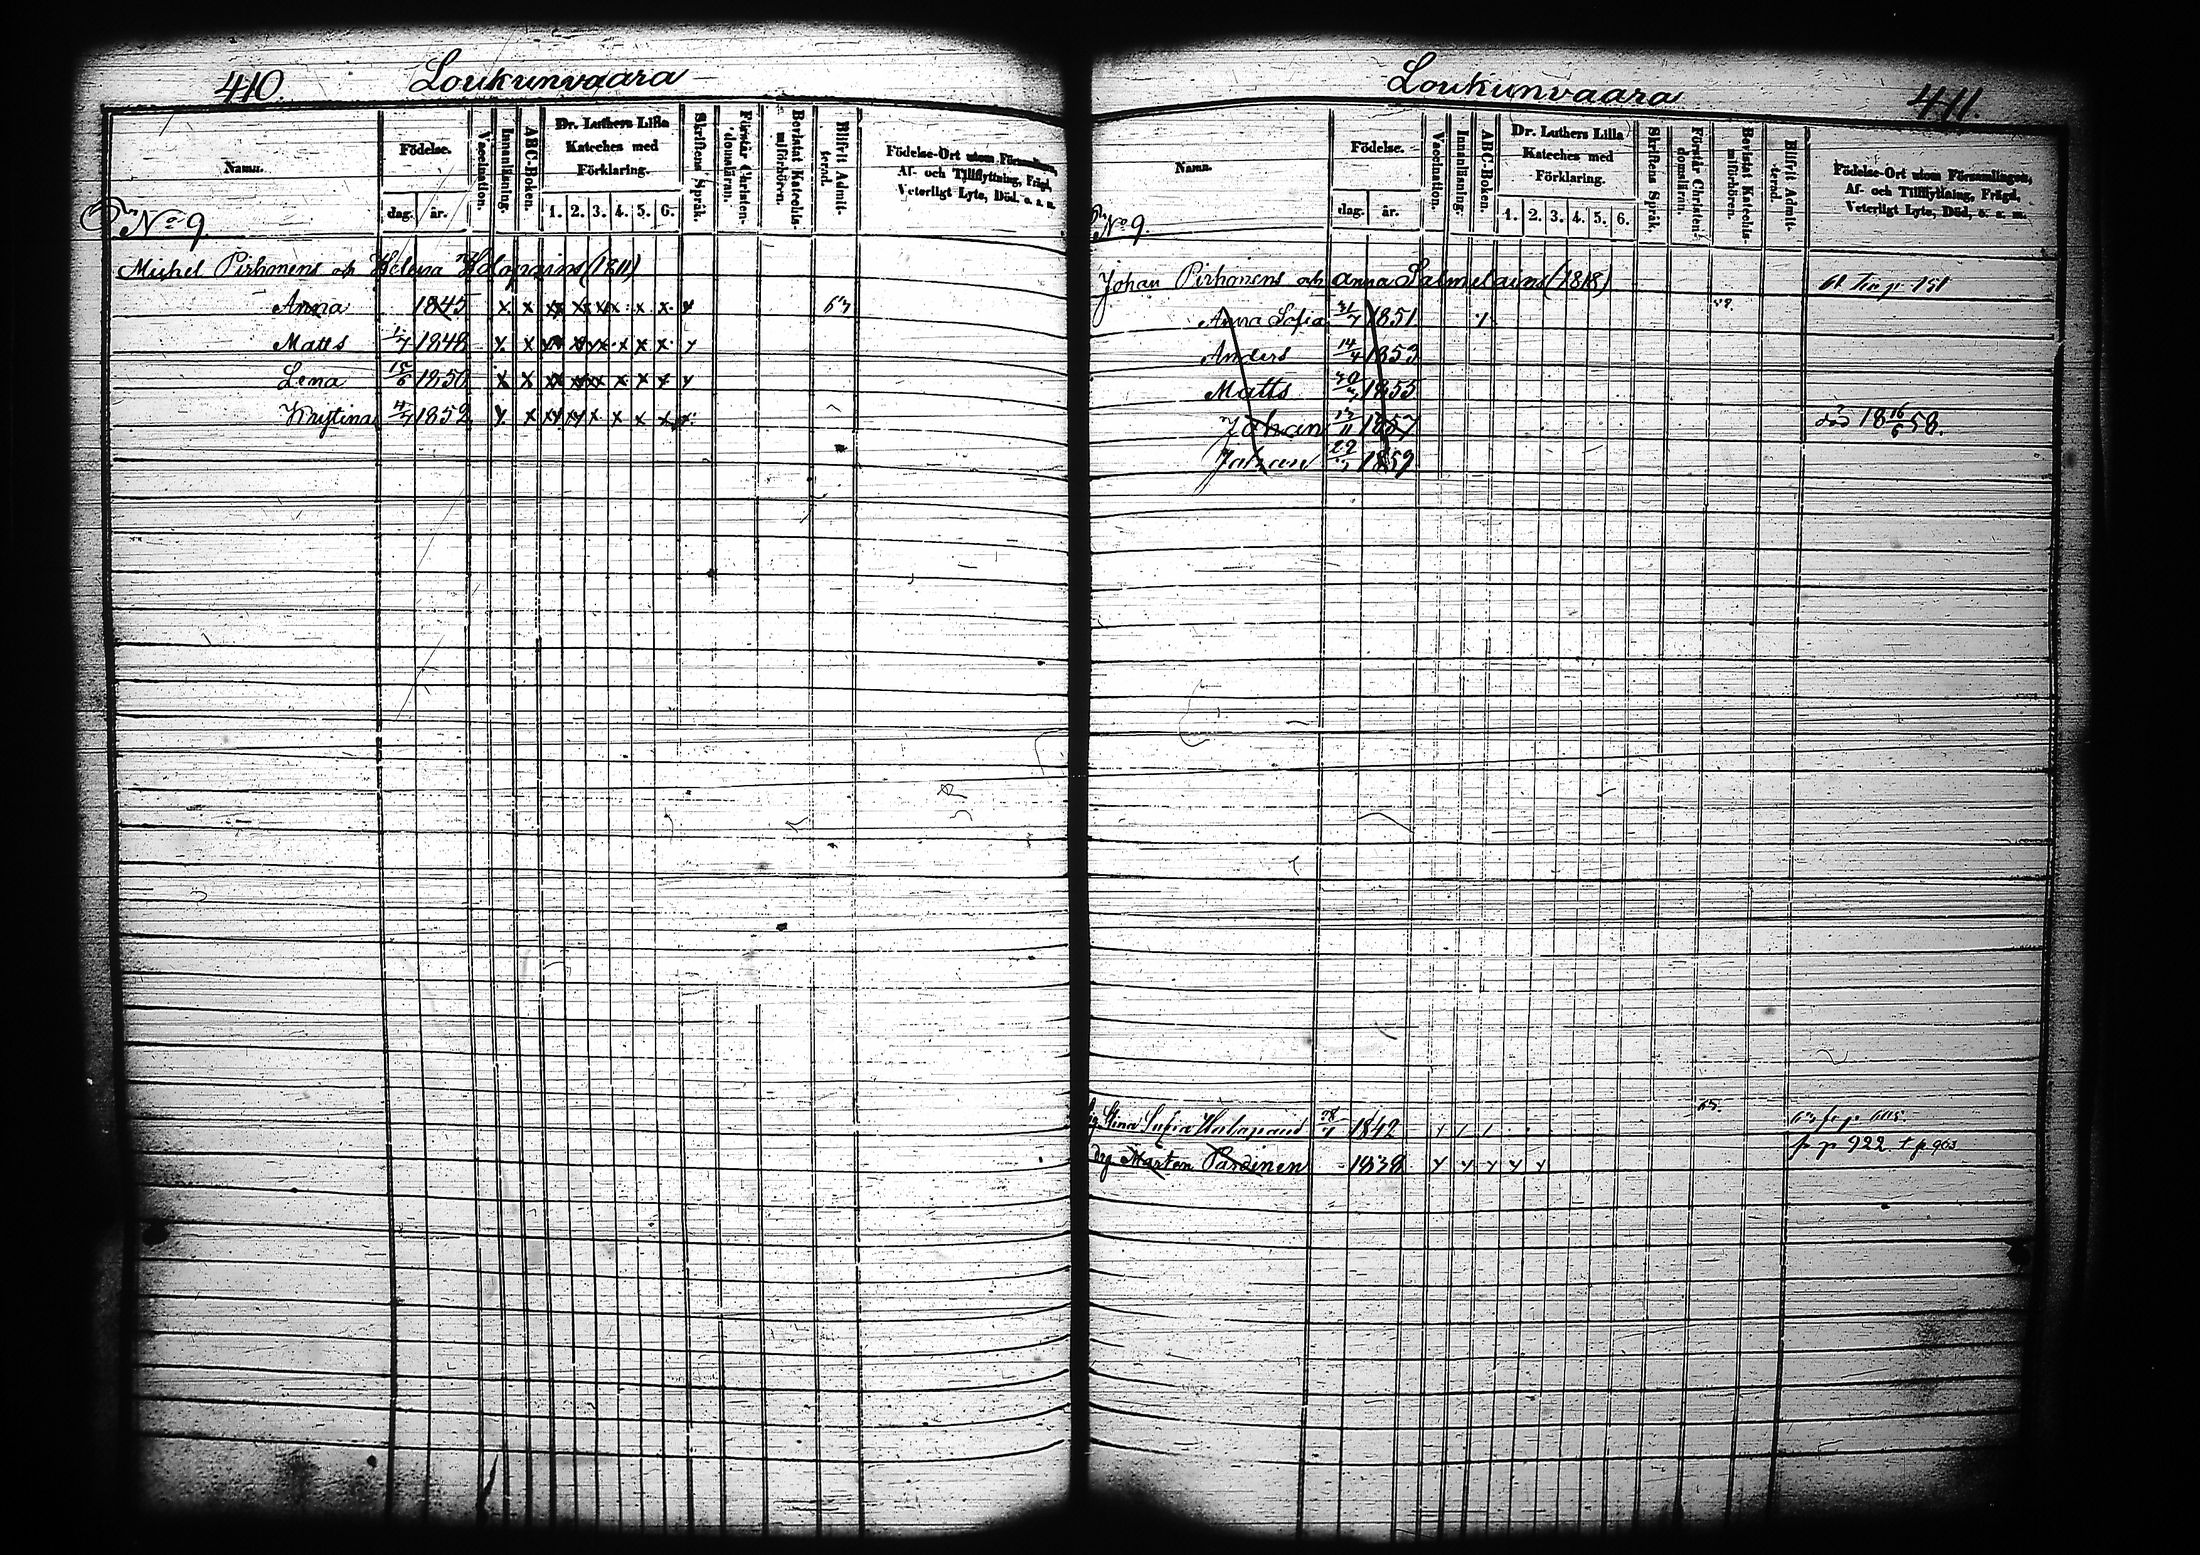 410. Loukunvaara
Namn.
Födelse.
dag. år.
Vaccination.
Innanläsning.
ABC-Boken.
Dr. Luthers Lilla
Kateches med
Förklaring.
1. 2. 3. 4. 5. 6.
Skriftens Språk.
Förstår Christen-
domsläran.
Bevistat Katechis-
miförhören.
Blifvit Admit-
terad.
Födelse-Ort utom Församlingen,
Af- och Tillflyttning, Frägd,
Veterligt Lyte, Död. o. s. m.
No 9.
Michel Pirhonens och Helena
Anna 1845 x x xx x xx x x x x 63
Matts 1/7 1848 x x
Lena 15/6 1850 x x
Krystina 4/7 1852 x x
Loukunvaara 411.
Namn.
Födelse.
dag. år.
Vaccination.
Innanläsning.
ABC-Boken.
Dr. Luthers Lilla
Kateches med
Förklaring.
1. 2. 3. 4. 5. 6.
Skriftens Språk.
Förstår Christen-
domsläran.
Bevistat Katechis-
miförhören.
Blifvit Admit-
terad.
Födelse-Ort utom Församlingen,
Af- och Tillflyttning, Frägd,
Veterligt Lyte, Död, o. s. m.
No 9.
Johan Pirhonens och Anna Salmelains (1818)
Anna Sofia 1851
Anders 14/4 1853
Matts 1855
Johan 1857 död 18 16/6 58.
Johan 1859
Stina Sofia 1842 65.
Mårten Parvinen 1838 p p 922